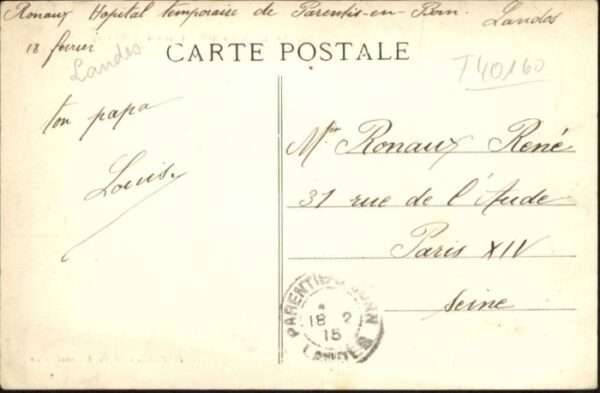 Ronaux Hopital temporaire de Parentis-en-Born. Landes
18 fevrier
Landes
CARTE POSTALE
T40160
ton papa
Louis.
Mr Ronaux René
31 rue de l'Aude
Paris XIV
Seine
PARENTIS-EN-BORN
18 2
15
LANDES